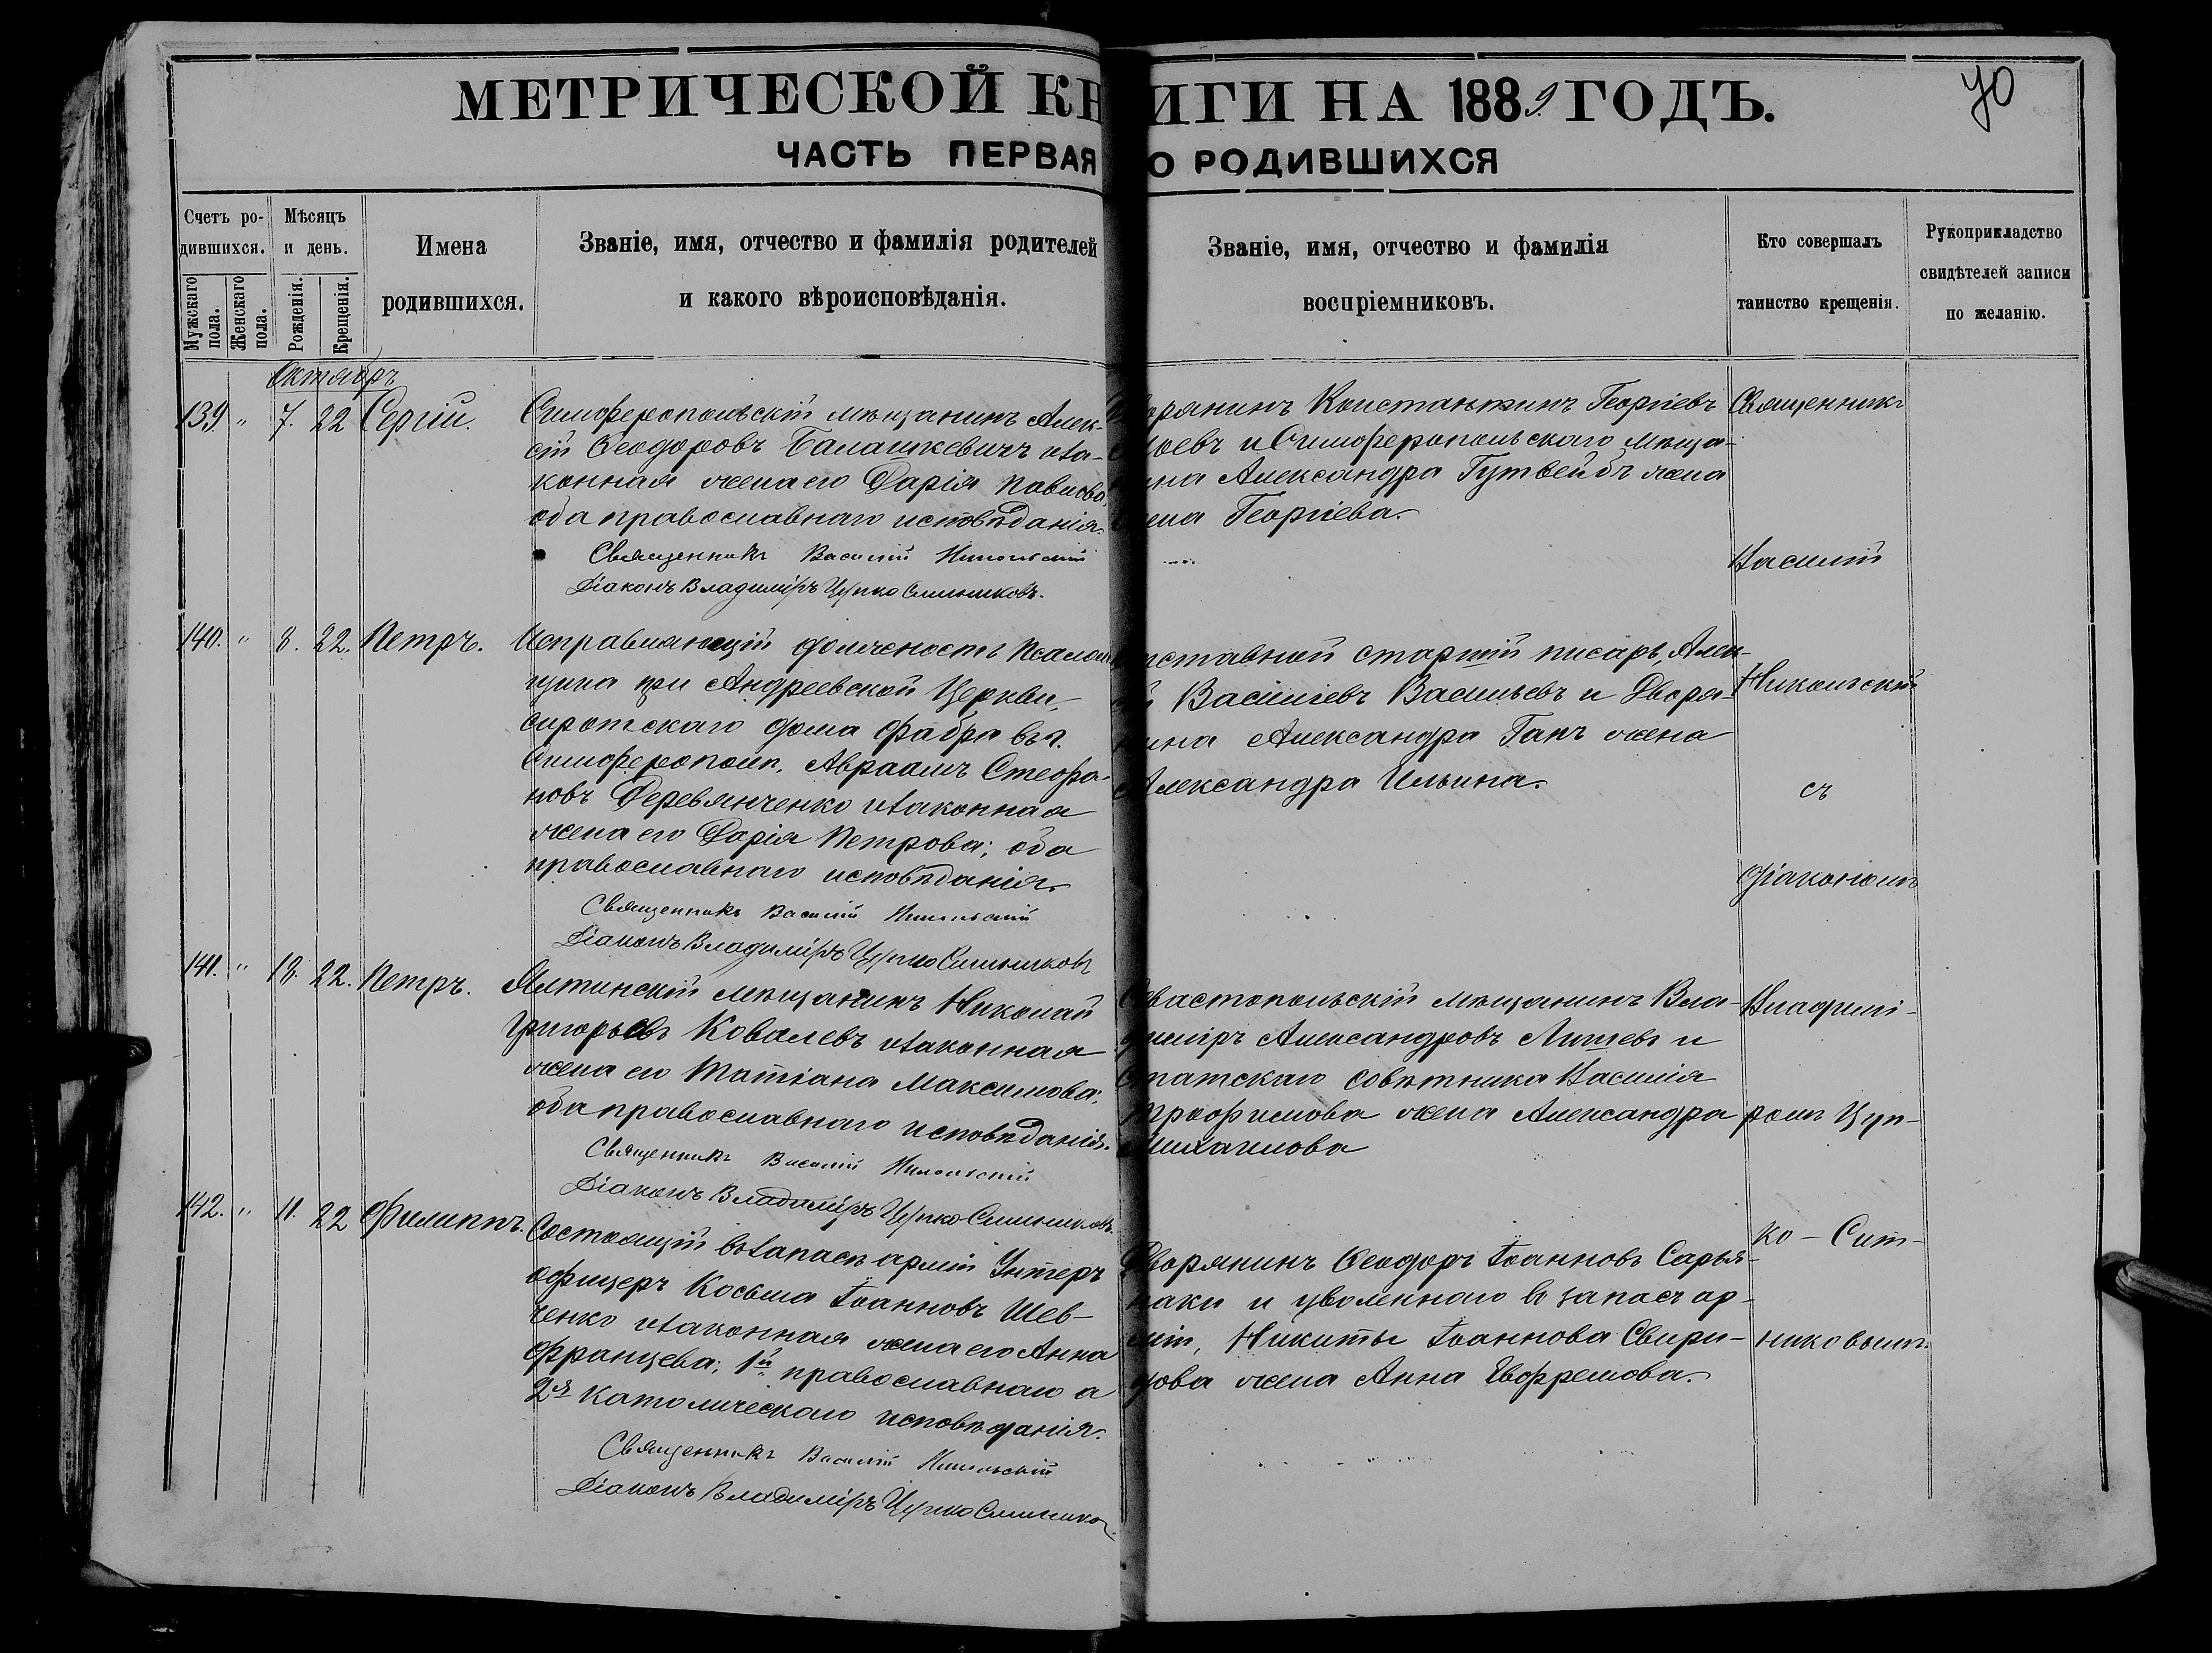 МЕТРИЧЕСКОЙ КНИГИ НА 1889 ГОДЪ.
70
ЧАСТЬ ПЕРВАЯ О РОДИВШИХСЯ
Счетъ родившихся.
Мужскаго пола.
Женскаго пола.
Мѣсяцъ и день.
Рожденія.
Крещенія.
Имена
родившихся.
Званіе, имя, отчество и фамилія родителей
и какого вѣроисповѣданія.
Званіе, имя, отчество и фамилія
воспріемниковъ.
Кто совершалъ
таинство крещенія.
Рукоприкладство
свидѣтелей записи
по желанію.
Октябрь
139. " 7. 22 Сергій.
Симферопольскій мѣщанинъ Алек-
сій Ѳеодоровъ Балашкевичъ иза-
конная жена его Дарія Павлова,
оба православнаго исповѣданія.
Священникъ Василій Никольскій
Діаконъ Владиміръ Цупко Ситниковъ.
Дворянинъ Константинъ Георгіевъ
и Симферопольскаго мѣща-
нина Александра Гутвейбъ жена
Елена Георгіева.
140. " 8. 22. Петръ.
Исправляющій должность Псалом-
щика при Андреевской Церкви,
сиротскаго дома Фабра въ г.
Симферополѣ, Авраамъ Стефа-
новъ Деревянченко изаконная
жена его Дарія Петрова; оба
православнаго исповѣданія.
Священникъ Василій Никольскій
Діаконъ Владиміръ Цупко Ситниковъ
Отставной старшій писарь, Алек-
сій Василіевъ Васильевъ и Дворя-
нина Александра Гапъ жена
Александра Ильина.
141. " 18. 22. Петръ.
Ялтинскій мѣщанинъ Николай
Григорьевъ Ковалевъ изаконная
жена его Татіана Максимова;
оба православнаго исповѣданія.
Священникъ Василій Никольскій
Діаконъ Владиміръ Цупко Ситниковъ.
Севастопольскій мѣщанинъ Вла-
диміръ Александровъ Лишевъ и
Статскаго совѣтника Василія
Трофимова жена Александра
Михаилова
142. " 11. 22 Филиппъ.
Состоящій въ запасѣ арміи Унтеръ
офицеръ Косьма Іоанновъ Шев-
ченко изаконная жена его Анна
Францева; 1й православнаго а
2я католическаго исповѣданія.
Священникъ Василій Никольскій
Діаконъ Владиміръ Цупко Ситнико
Дворянинъ Ѳеодоръ Іоанновъ Сарья-
наки и уволеннаго въ запасъ ар-
міи, Никиты Іоаннова Свири-
дова жена Анна Евфремова.
Священникъ
Василій
Никольскій
съ
діакономъ
Владимі-
ромъ Цуп-
ко - Сит-
никовымъ.